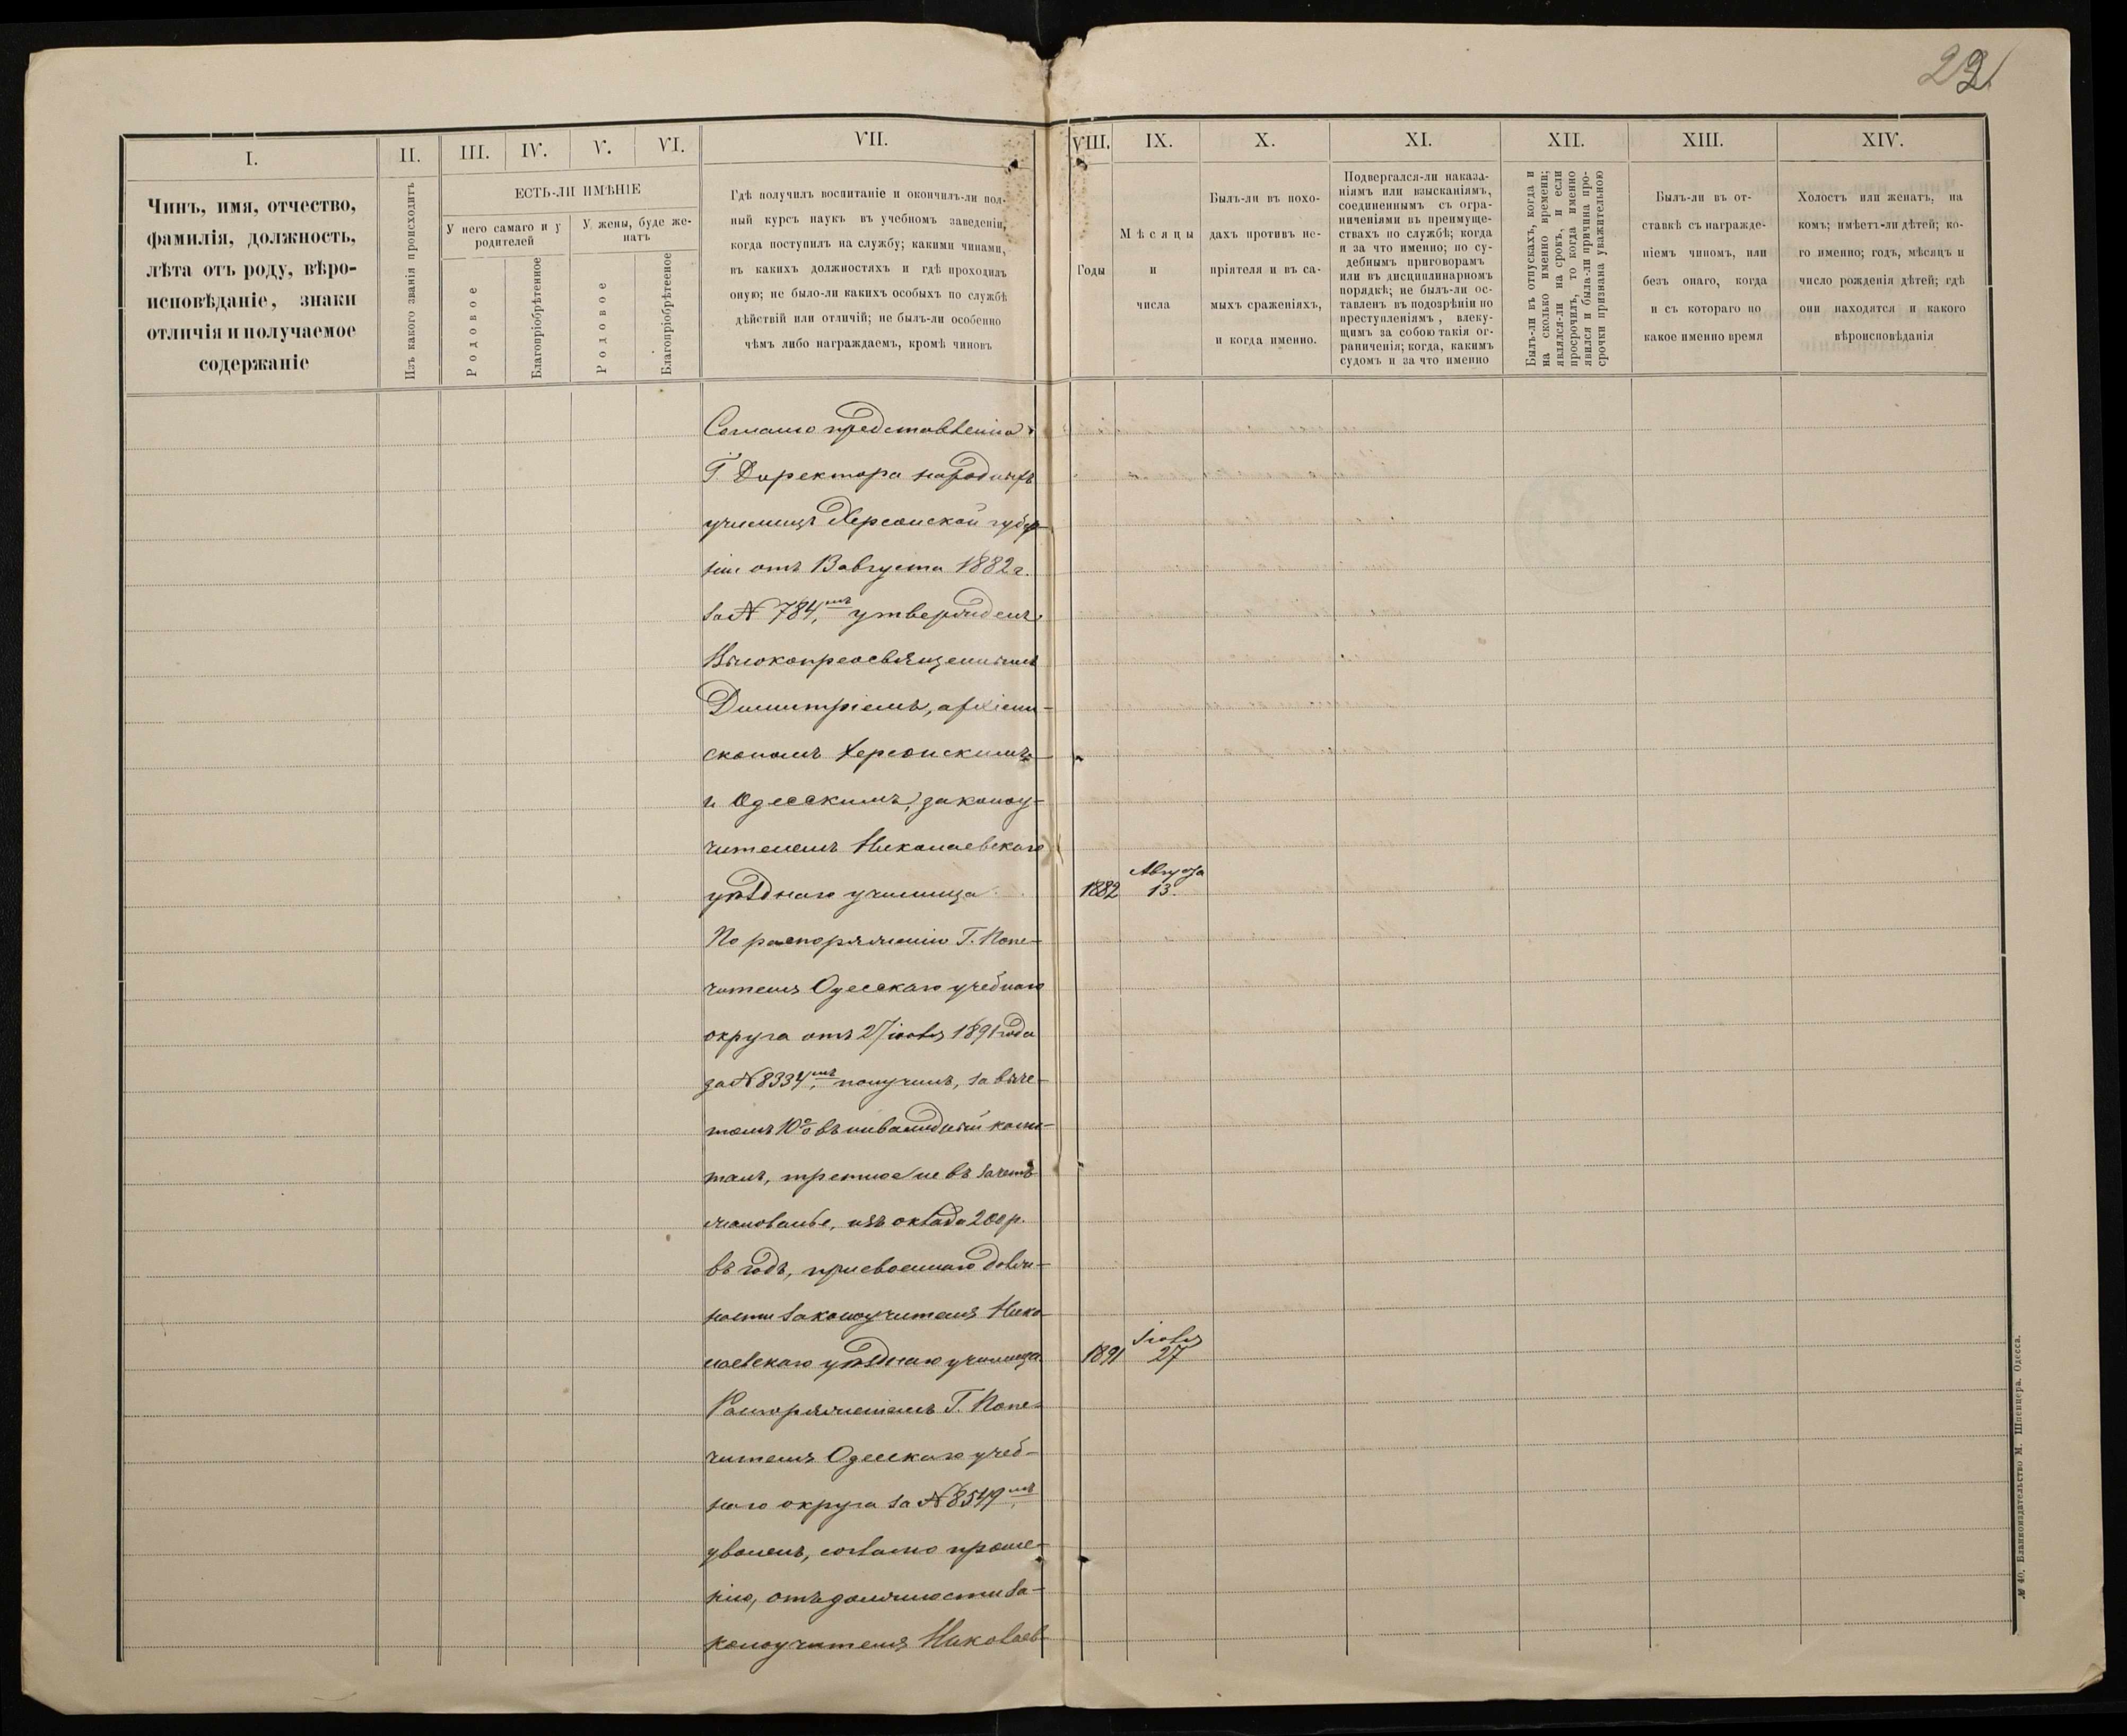 22
I.
II.
III.
IV.
V.
VI.
VII.
VIII.
IX.
X.
XI.
XII.
XIII.
XIV.
Чинъ, имя, отчество,
фамилія, должность,
лѣта отъ роду, вѣро-
исповѣданіе, знаки
отличія и получаемое
содержаніе
Изъ какого званія происходитъ
ЕСТЬ-ЛИ ИМѢНІЕ
У него самаго и у
родителей
У жены, буде же-
натъ
Родовое
Благопріобрѣтенное
Родовое
Благопріобрѣтенное
Гдѣ получилъ воспитаніе и окончилъ-ли пол-
ный курсъ наукъ въ учебномъ заведеніи,
когда поступилъ на службу; какими чинами,
въ какихъ должностяхъ и гдѣ проходилъ
оную; не было-ли какихъ особыхъ по службѣ
дѣйствій или отличій; не былъ-ли особенно
чѣмъ либо награждаемъ, кромѣ чиновъ
Годы
Мѣсяцы
и
числа
Былъ-ли въ похо-
дахъ противъ не-
пріятеля и въ са-
мыхъ сраженіяхъ,
и когда именно.
Подвергался-ли наказа-
ніямъ или взысканіямъ,
соединеннымъ съ огра-
ниченіями въ преимуще-
ствахъ по службѣ; когда
и за что именно; по су-
дебнымъ приговорамъ
или въ дисциплинарномъ
порядкѣ; не былъ-ли ос-
тавленъ въ подозрѣніи по
преступленіямъ, влеку-
щимъ за собою такія ог-
раниченія; когда, какимъ
судомъ и за что именно
Былъ-ли въ отпускахъ, когда и
на сколько именно времени;
являлся-ли на срокъ, и если
просрочилъ, то когда именно
явился и была-ли причина про-
срочки признана уважительною
Былъ-ли въ от-
ставкѣ съ награжде-
ніемъ чиномъ, или
безъ онаго, когда
и съ котораго по
какое именно время
Холостъ или женатъ, на
комъ; имѣетъ-ли дѣтей; ко-
го именно; годъ, мѣсяцъ и
число рожденія дѣтей; гдѣ
они находятся и какого
вѣроисповѣданія
Согласно представленію
Г. Директора народныхъ
училищъ Херсонской губер-
ніи отъ 13 августа 1882 г.
за № 784,мъ утвержденъ
Высокопреосвященнымъ
Димитріемъ, архіепи-
скопомъ Херсонскимъ
и Одесскимъ, законоу-
чителемъ Николаевскаго
уѣзднаго училища
1882
Августа
13.
По распоряженію Г. Попе-
чителя Одесскаго учебнаго
округа отъ 27 іюля 1891 года
за № 8334,мъ получилъ, за выче-
томъ 10% въ инвалидный капи-
талъ, третное не въ зачетъ
жалованье, изъ оклада 200 р.
въ годъ, присвоеннаго долж-
ности законоучителя Нико-
лаевскаго уѣзднаго училища
1891
Іюля
27
Распоряженіемъ Г. Попе-
чителя Одесскаго учеб-
наго округа за № 8549,мъ
уволенъ, согласно проше-
нію, отъ должности за-
коноучителя Николаев-
№ 40, Бланкоиздательство М. Шпенцера. Одесса.